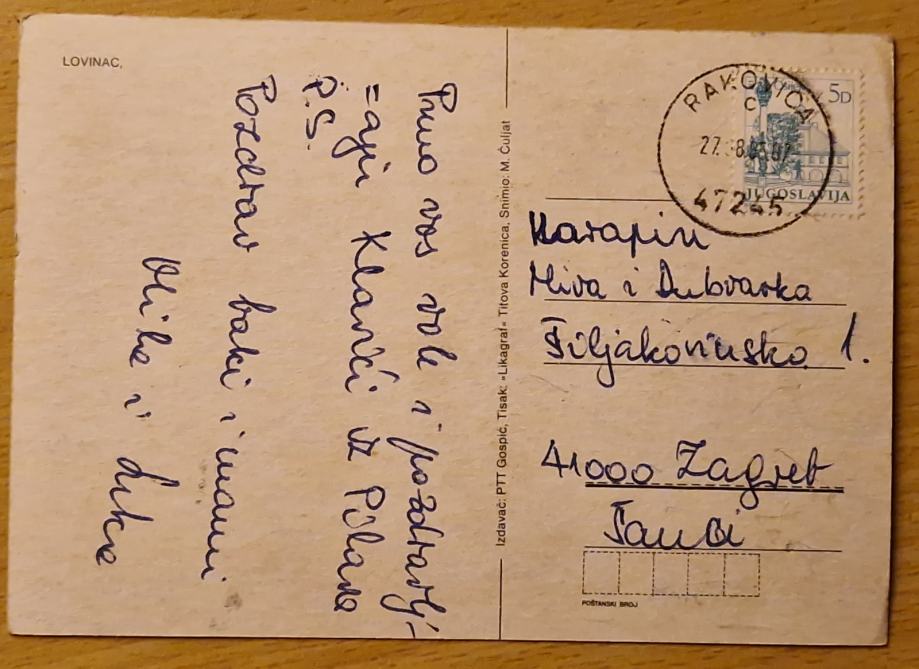 LOVINAC,
Puno vas vole i pozdravlj-
=aju Klarići iz
P.S.
Pozdrav baki i mami
i Luka
Izdavač: PTT Gospić, Tisak: »Likagraf« Titova Korenica, Snimio: M. Čuljat
RAKOVICA
C
47245
5D
JUGOSLAVIJA
Harapin
Mira i Dubravka
Šiljakovinska 1.
41000 Zagreb
Šanci
POŠTANSKI BROJ